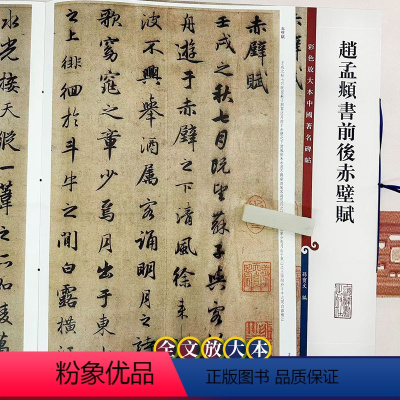 趙孟頫書前後赤壁賦
彩色放大本中國著名碑帖
孫寶文 編
赤壁賦
赤壁賦
壬戌之秋七月既望蘇子與客
舟遊於赤壁之下清風徐來
波不興舉酒属客誦明月之
歌窈窕之章少焉月出于東
之上徘徊於斗牛之間白露橫
水光接天縱一葦之所如凌萬
全文放大本
粉象优品